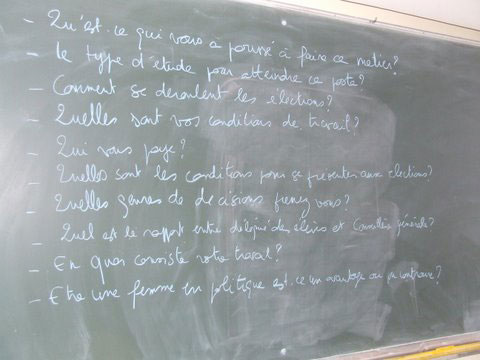 - Qu'est-ce qui vous a poussé à faire ce métier?
- le type d'étude pour atteindre ce poste?
- Comment se déroulent les élections?
- Quelles sont vos conditions de travail?
- Qui vous paye?
- Quelles sont les conditions pour se présenter aux élections?
- Quelles genres de décisions prenez vous?
- Quel est le rapport entre délégué des élèves et Conseillère générale?
- En quoi consiste votre travail?
- Etre une femme en politique est-ce un avantage ou au contraire?